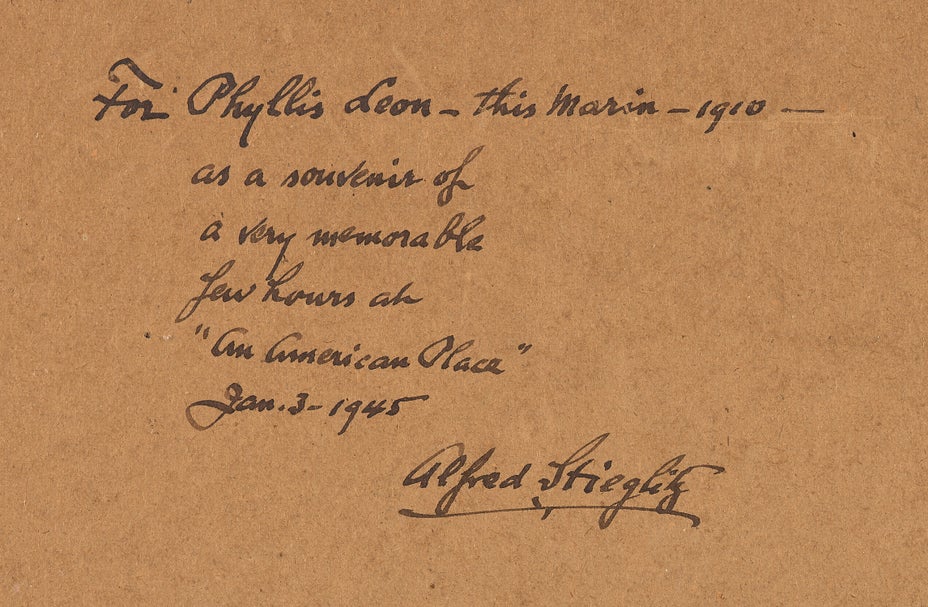 For Phyllis Leon – this Marin – 1910 —
as a souvenir of
a very memorable
few hours at
"An American Place"
Jan. 3 – 1945
Alfred Stieglitz